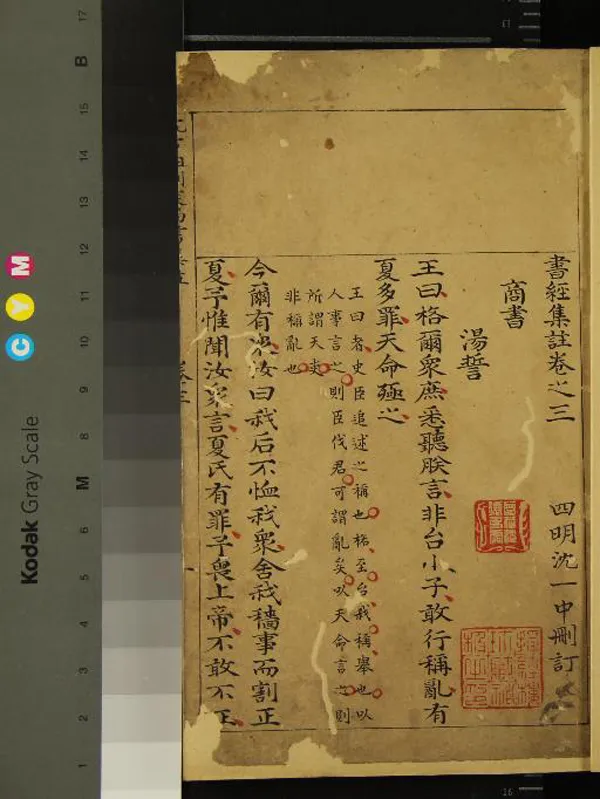 書經集註卷之三
四明沈一中刪訂
商書
湯誓
王曰格爾衆庶悉聽朕言非台小子敢行稱亂有
夏多罪天命殛之
王曰者史臣追述之稱也格至台我稱舉也以
人事言之則臣伐君可謂亂矣以天命言之則
所謂天吏
非稱亂也
今爾有衆汝曰我后不恤我衆舍我穡事而割正
夏予惟聞汝衆言夏氏有罪予畏上帝不敢不正
卷三
Kodak Gray Scale
C Y M
17
B
15
14
13
12
11
10
9
8
M
6
5
4
3
2
1